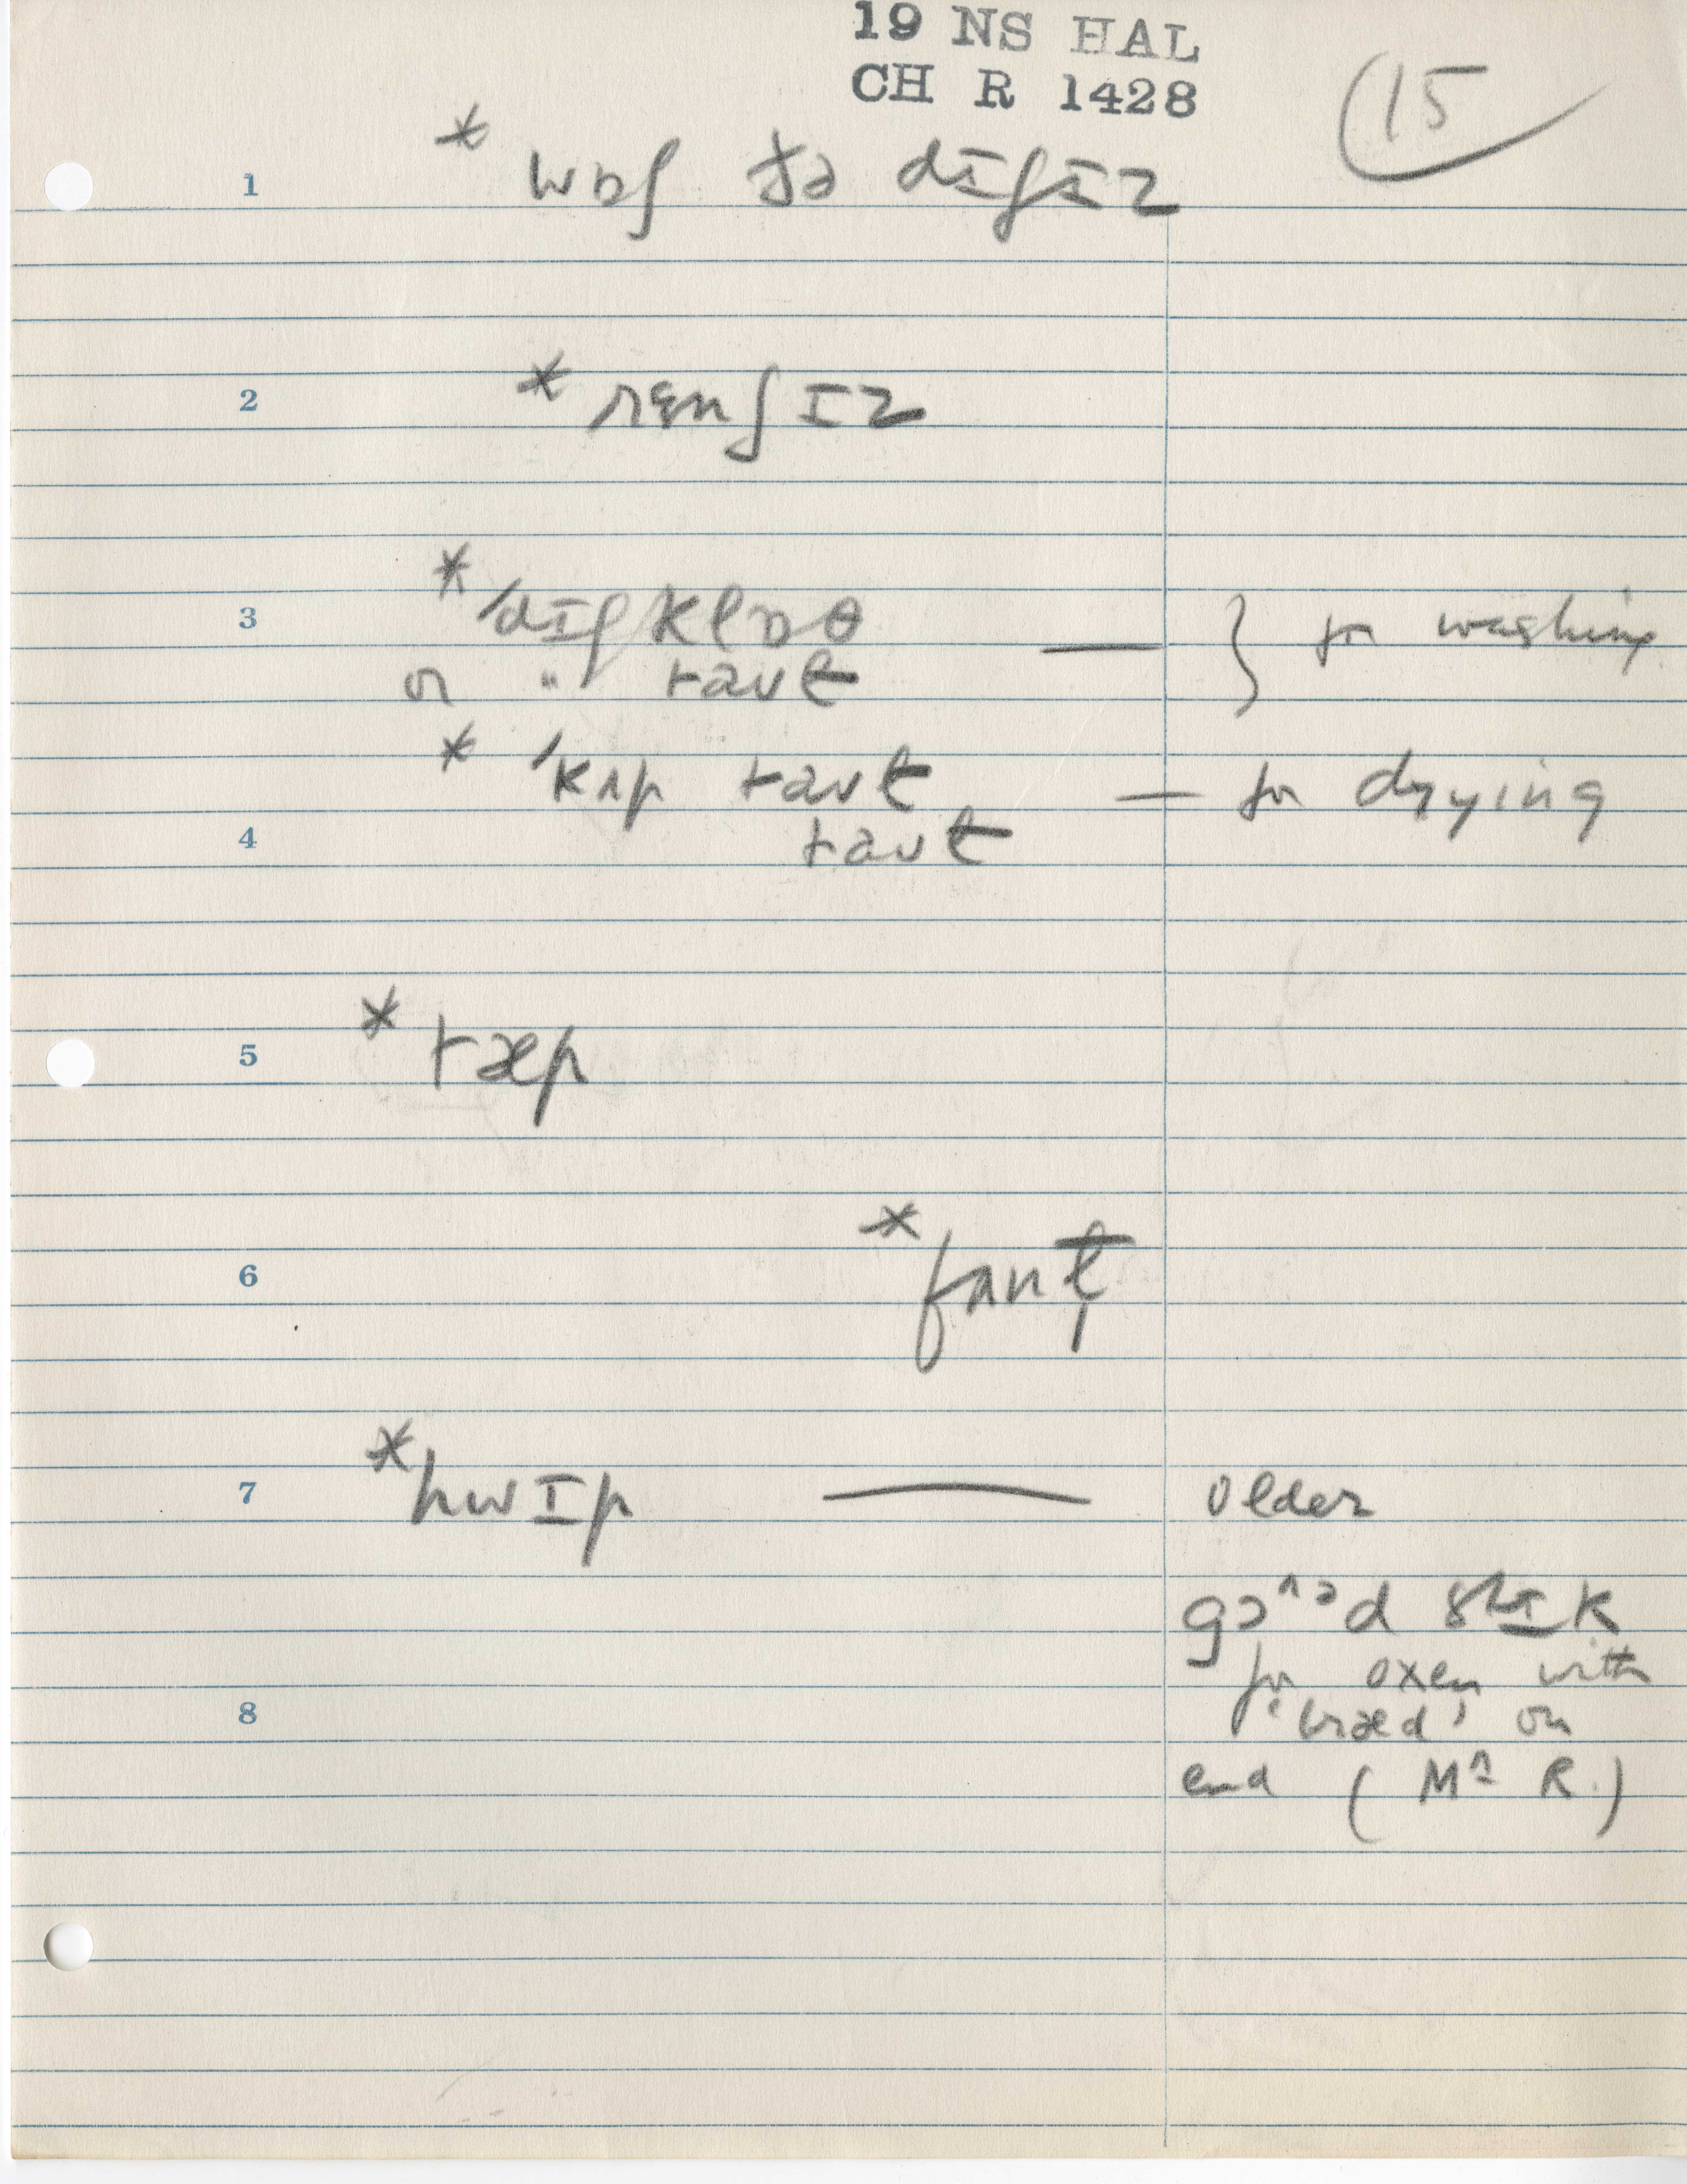 19 NS HAL
CH R 1428
15
1 * wɒʃ ðə dɪʃɪz
2 * rɛnʃɪz
3 * ˈdɪʃklɒθ — } for washing
or " taʊɛl
* ˈkʌp taʊɛl — for drying
4 taʊɛl
5 * tæp
6 *
7 * hwɪp — older
gɔ^ əd stɪk
for oxen with
8 'bræd' on
end (Mr R.)